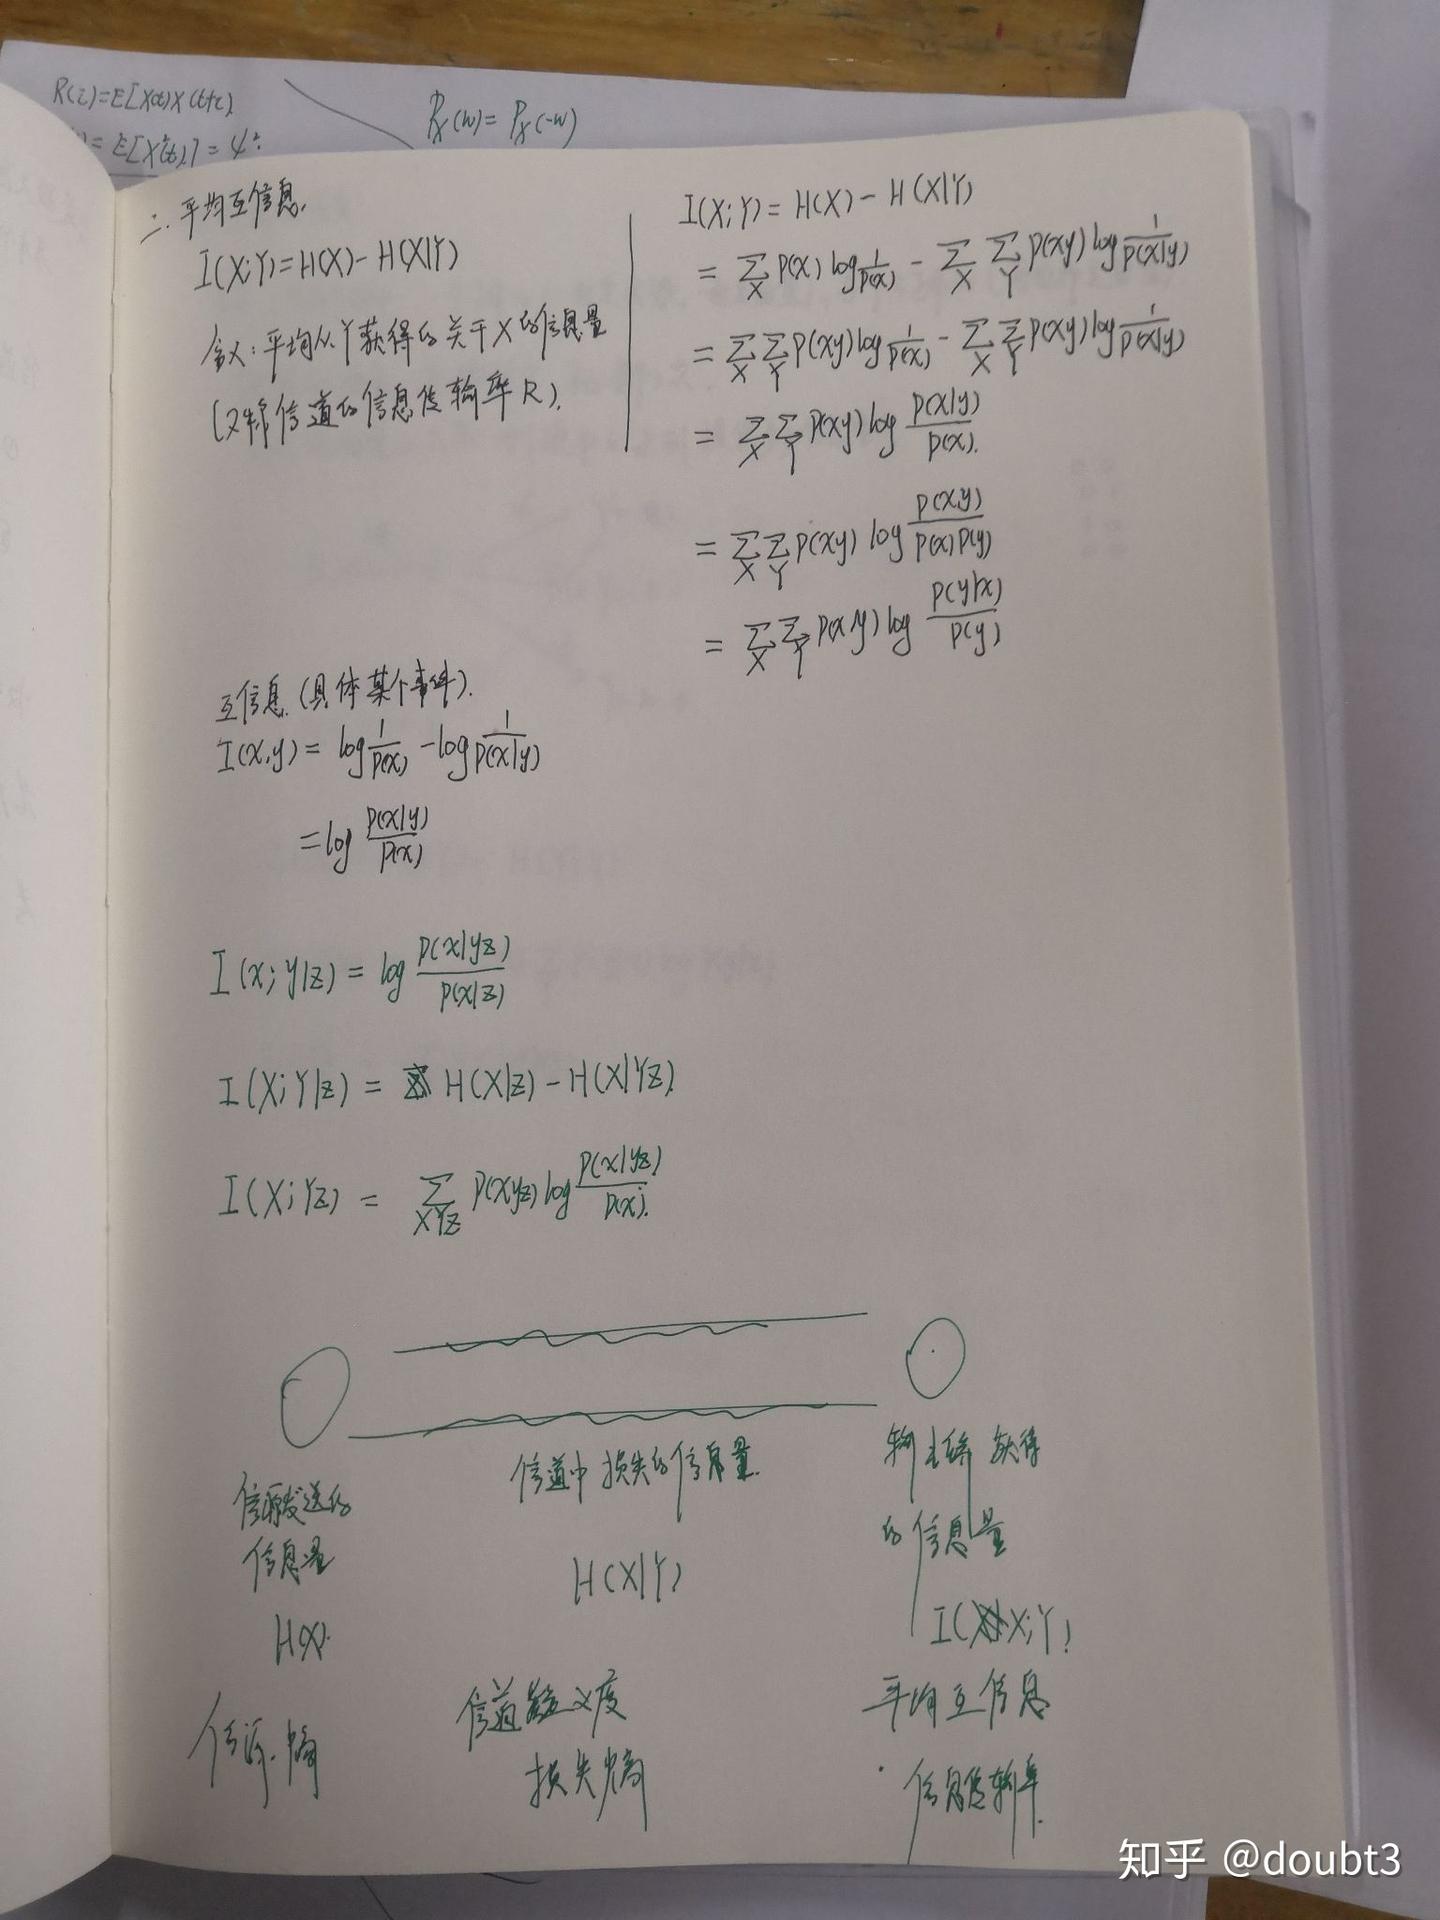 R(τ)=E[X(t)X(t+τ)]
= E[X²(t)] = ψ²
Pₓ(w) = Pₓ(-w)
二. 平均互信息.
I(X;Y)=H(X)-H(X|Y)
含义:平均从Y获得的关于X的信息量
(又称信道的信息传输率R).
I(X;Y)= H(X)- H(X|Y)
= ∑_X p(x) log 1/p(x) - ∑_X ∑_Y p(xy) log 1/p(x|y)
= ∑_X ∑_Y p(xy) log 1/p(x) - ∑_X ∑_Y p(xy) log 1/p(x|y)
= ∑_X ∑_Y p(xy) log p(x|y)/p(x).
= ∑_X ∑_Y p(xy) log p(xy)/p(x)p(y)
= ∑_X ∑_Y p(xy) log p(y|x)/p(y)
互信息.(具体某个事件).
I(x,y) = log 1/p(x) - log 1/p(x|y)
= log p(x|y)/p(x)
I(x;y|z) = log p(x|yz)/p(x|z)
I(X;Y|Z) = H(X|Z) - H(X|YZ).
I(X;YZ) = ∑_XYZ p(xyz) log p(x|yz)/p(x).
信源发送的
信息量
H(X).
信源.熵
信道中损失的信息量.
H(X|Y)
信道疑义度
损失熵
获得
的信息量
I(X;Y)
平均互信息
信息传输率.
知乎 @doubt3